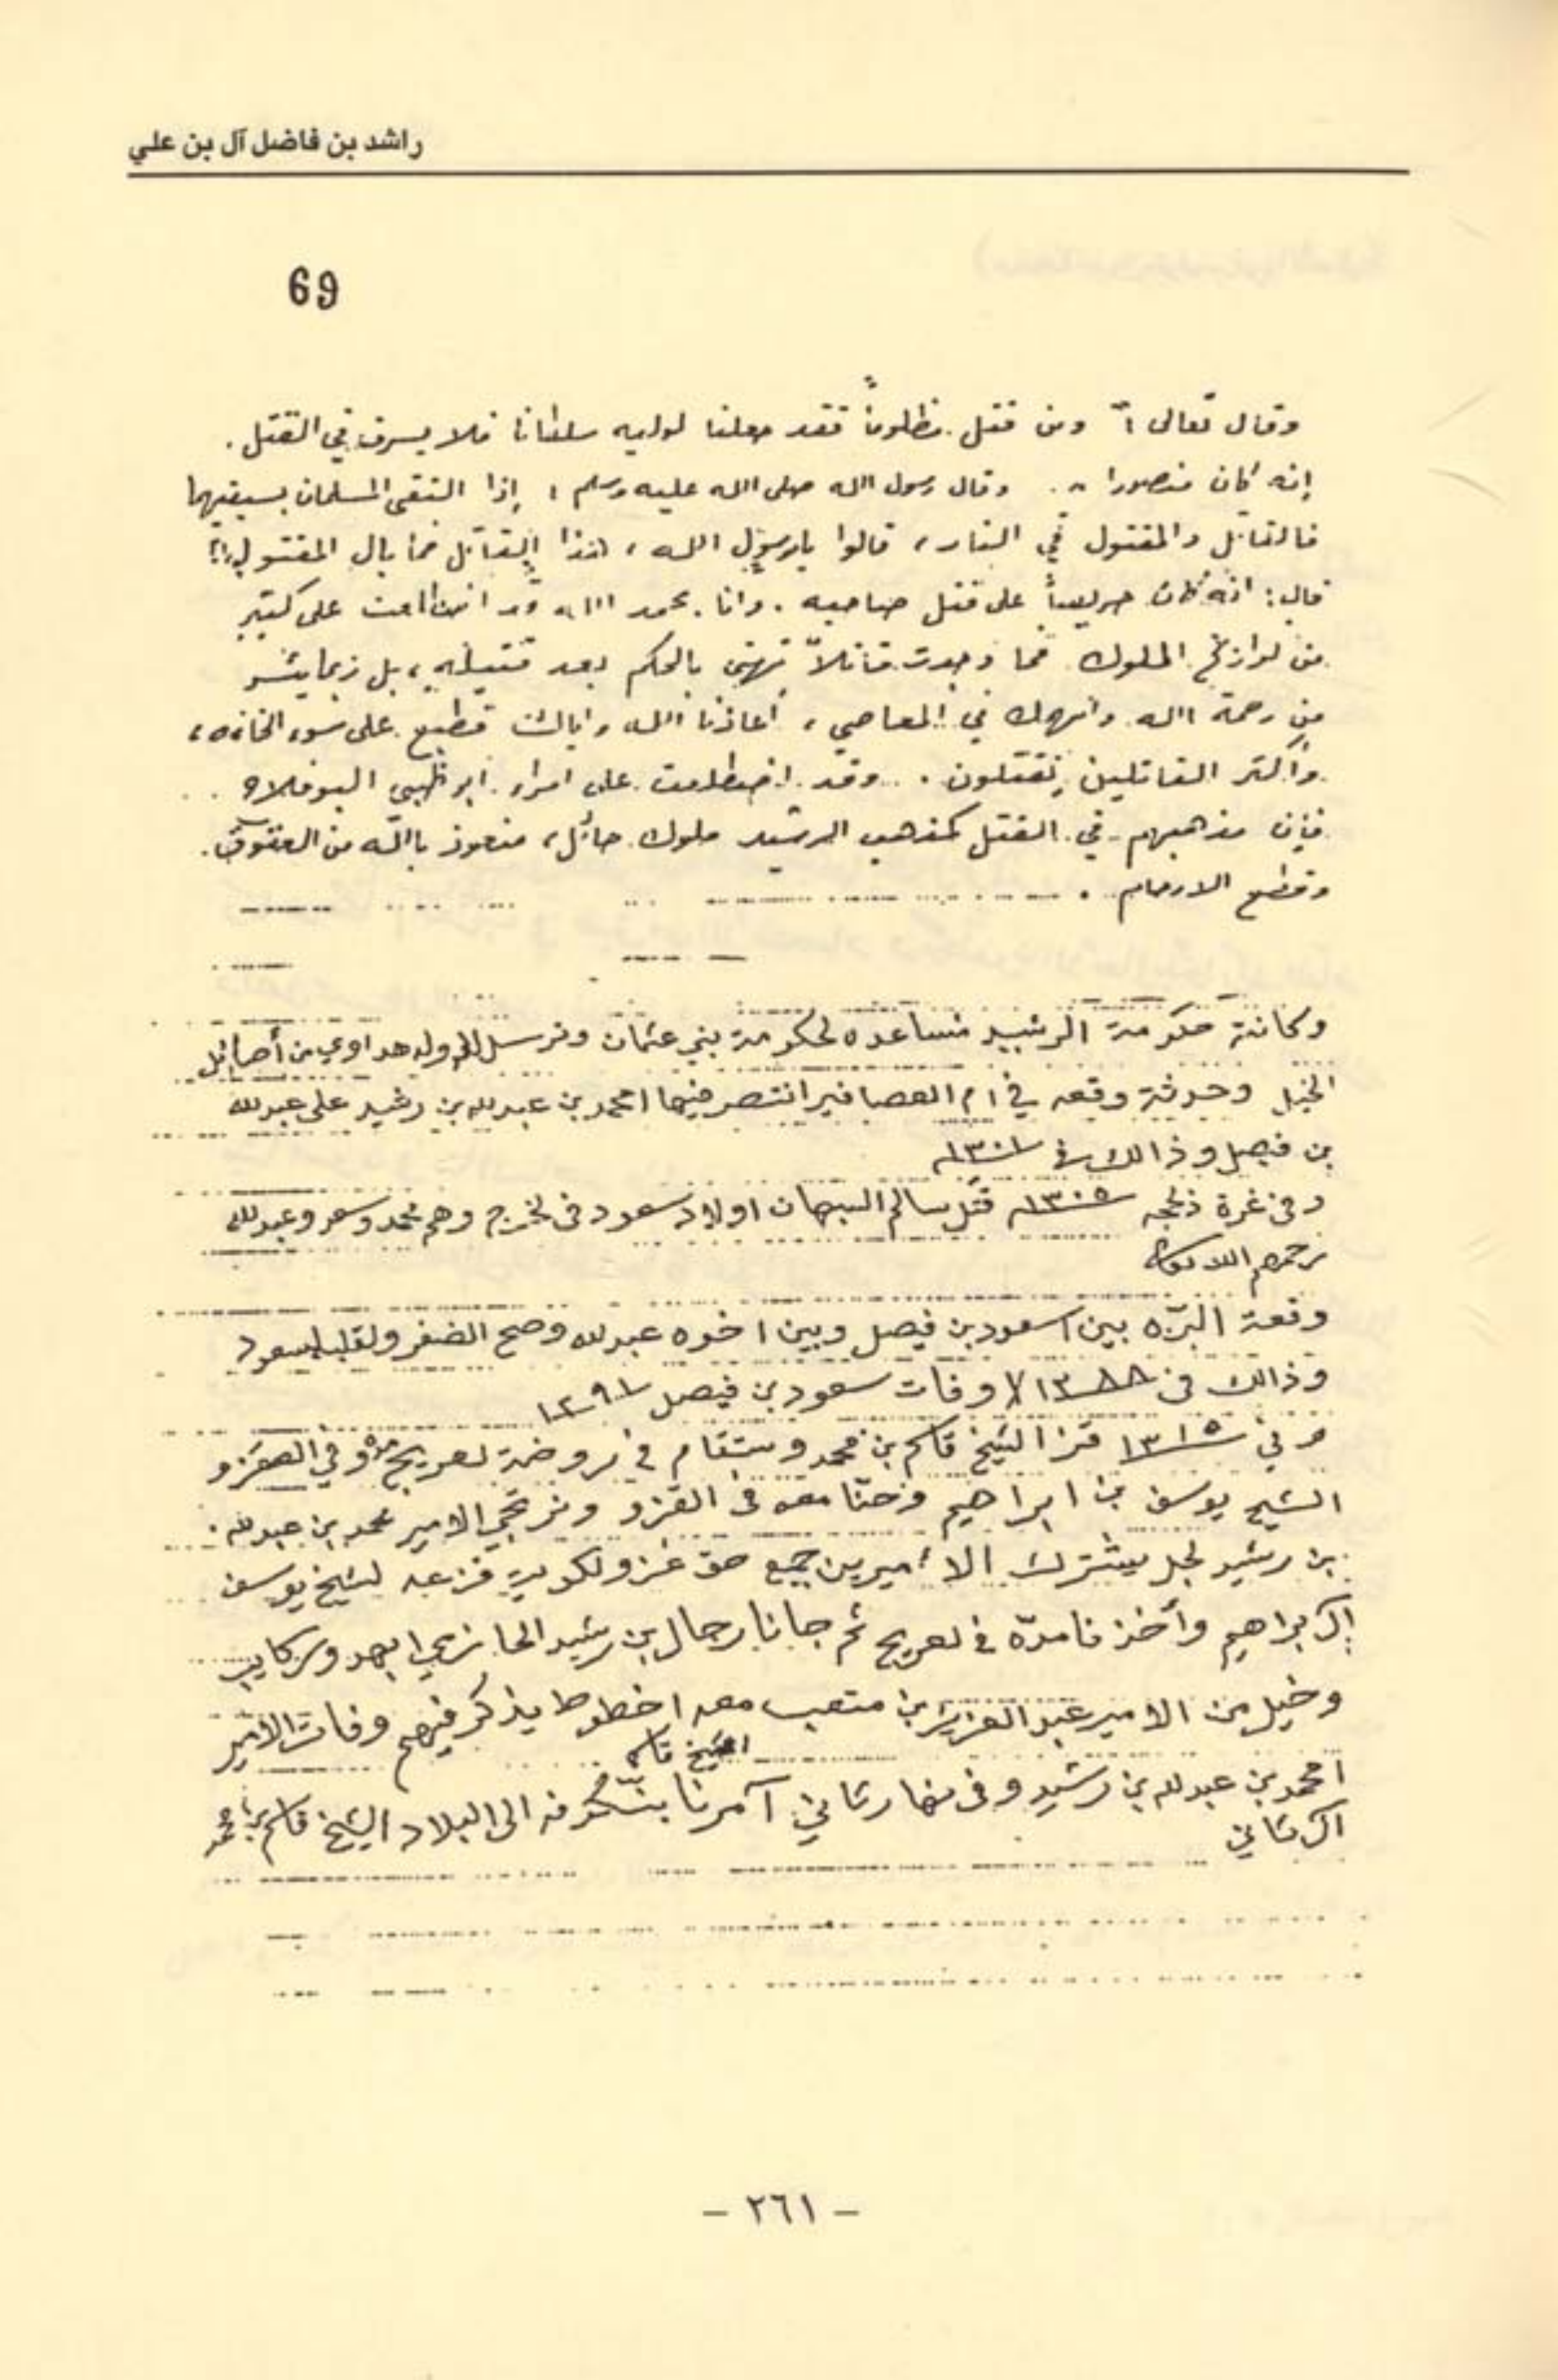 راشد بن فاضل آل بن علي
69
وقال تعالى : " ومن قتل مظلوماً فقد جعلنا لوليه سلطانا فلا يسرف في القتل .
إنه كان منصورا " . وقال رسول الله صلى الله عليه وسلم : إذا التقى المسلمان بسيفيهما
فالقاتل والمقتول في النار ، قالوا يارسول الله ، هذا القاتل فما بال المقتول ؟!
قال : انه كان حريصاً على قتل صاحبه . وانا بحمد الله قد اطلعت على كثير
من تواريخ الملوك فما وجدت قاتلاً تهنى بالحكم بعد قتيله ، بل ربما يئس
من رحمة الله وانهمك في المعاصي ، أعاذنا الله واياك فطبع على سوء الخاتمه ،
وأكثر القاتلين يقتلون . وقد اضطلعت على امراء ابو ظبي البوفلاح
فإن مذهبهم في القتل كمذهب الرشيد ملوك حائل ، فنعوذ بالله من العقوق .
وقطع الارحام .
وكانة حكومة الرشيد مساعده لحكومة بني عثمان وترسل هداوي من أصائل
الخيل وحدثة وقعه في ام العصافير انتصر فيها امحمد بن عبدلله بن رشيد على عبدلله
بن فيصل وذالك في ١٣٠١
وفي غرة ذلحجه ١٣٠٥ قتل سالم السبهان اولاد سعود في لخرج وهم محمد وسعد وعبدلله
وقعة البره بين اسعود بن فيصل وبين اخوه عبدلله وصح الضفر ولقلبه لسعود
وذالك في وفات سعود بن فيصل ١٢٩١
وفي ١٣١٥ قزا الشيخ قاسم بن محمد وستقام في روضة لعريج وفي القزو
الشيخ يوسف بن ابراهيم وحنا معه في القزو ونرتجي الامير محمد بن عبدلله
بن رشيد لجل يشترك الا أميرين جميع حق غزو لكويت فزعه لشيخ يوسف
آل براهيم وأخذنا مدّة في لعريج ثم جانا رجال بن رشيد الحازمي ابعهد وركايب
وخيل من الامير عبدالعزيز بن متعب معه اخطوط يذكر فيهم وفات الامير
الشيخ قاسم
امحمد بن عبدلله بن رشيد وفي نهار ثاني آمرنا الى البلاد الشيخ قاسم بن محمد
آل ثاني
– ٢٦١ –